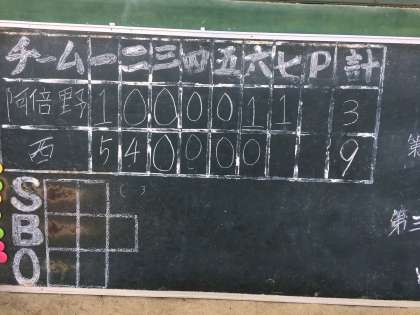 チーム 一 二 三 四 五 六 七 P 計
阿倍野 1 0 0 0 0 1 1 3
西 5 4 0 0 0 0 9
S
B
O
第
第三